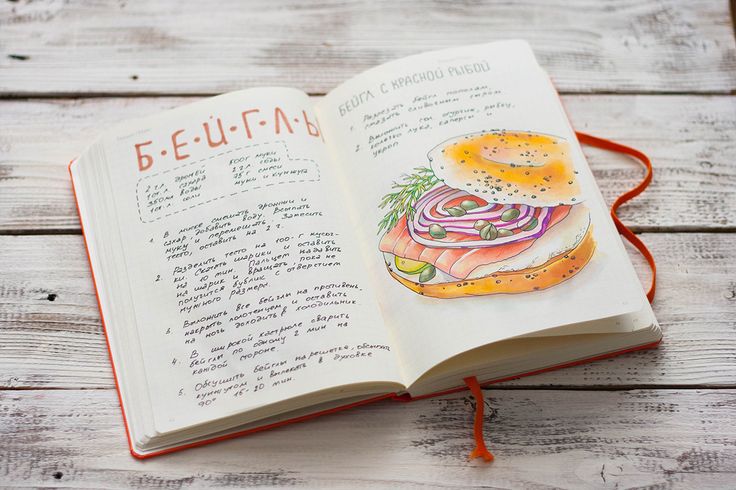 Б·Е·Й·Г·Л·Ы
2 ч.л. дрожжей 600г муки
1 ст.л. сахара 2 ч.л. соды
360мл воды 75 г смеси
1 ч.л. соли мука и кунжута
1. В миске смешать дрожжи и
сахар, добавить воду. Всыпать
муку и перемешать. Замесить
тесто, оставить на 2 г.
2. Разделить тесто на 100-г
Скатать шарики и оставить
на 10 мин. Пальцем надавить
на шарик и вращать, пока не
получится бублик с отверстием
нужного размера.
3. Выложить все бейглы на противень,
накрыть полотенцем и оставить
на ночь доходить в холодильник
4. В широкой кастрюле сварить
бейглы по одному 2 мин на
каждой стороне.
5. Обсушить бейглы на решетке, обсыпать
кунжутом и выпекать в духовке
90° 15-20 мин.
БЕЙГЛ С КРАСНОЙ РЫБОЙ
1. Разрезать бейгл пополам,
смазать сливочным сыром
2. Выложить сол. огурчик, рыбку,
колечко лука, каперсы и
укроп